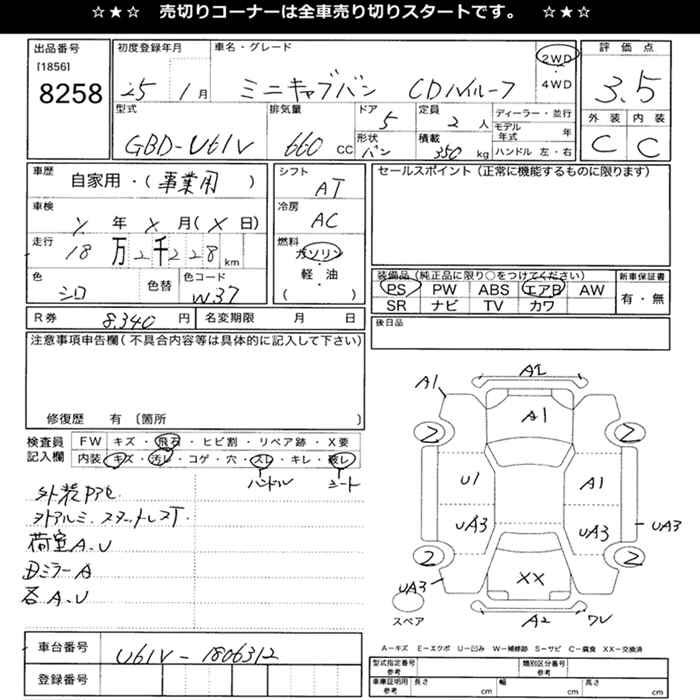 ☆★☆ 売切りコーナーは全車売り切りスタートです。 ☆★☆
出品番号 初度登録年月 車名・グレード 評価点
[1856]
8258 25 1月 ミニキャブバン CDハイルーフ 2WD・4WD 3.5
型式 排気量 ドア 定員 ディーラー・並行 外装 内装
GBD-U61V 660 CC 5 2人 モデル年式 年 C C
形状 積載 ハンドル 左・右
バン 350 kg
車歴 自家用・(事業用) シフト AT セールスポイント(正常に機能するものに限ります)
車検 X年X月(X日) 冷房 AC
走行 18万2千228km 燃料 ガソリン・軽・油
( )
色 シロ 色替 色コード W37
装備品(純正品に限り○をつけてください) 新車保証書
PS PW ABS エアB AW 有・無
SR ナビ TV カワ
R券 8,340円 名変期限 月 日 後日品
注意事項申告欄(不具合内容等は具体的に記入して下さい)
修復歴 有 〔箇所 〕
検査員記入欄 FW キズ・飛石・ヒビ割・リペア跡・X要
内装 キズ・汚レ・コゲ・穴・スレ・キレ・破レ
ハンドル シート
外アルミ.スタットレスT
荷室A.U
Dミラー A
各A.U
A1 A2
A1
2 2
U1 A1
UA3 UA3 UA3
2 2
UA3 XX
スペア A2 ワレ
A－キズ E－エクボ U－凹み W－補修跡 S－サビ C－腐食 XX－交換済
車台番号 U61V-1806312
登録番号
型式指定番号 参考 類別区分番号 参考
車庫証明用 参考 長さ cm 幅 cm 高さ cm